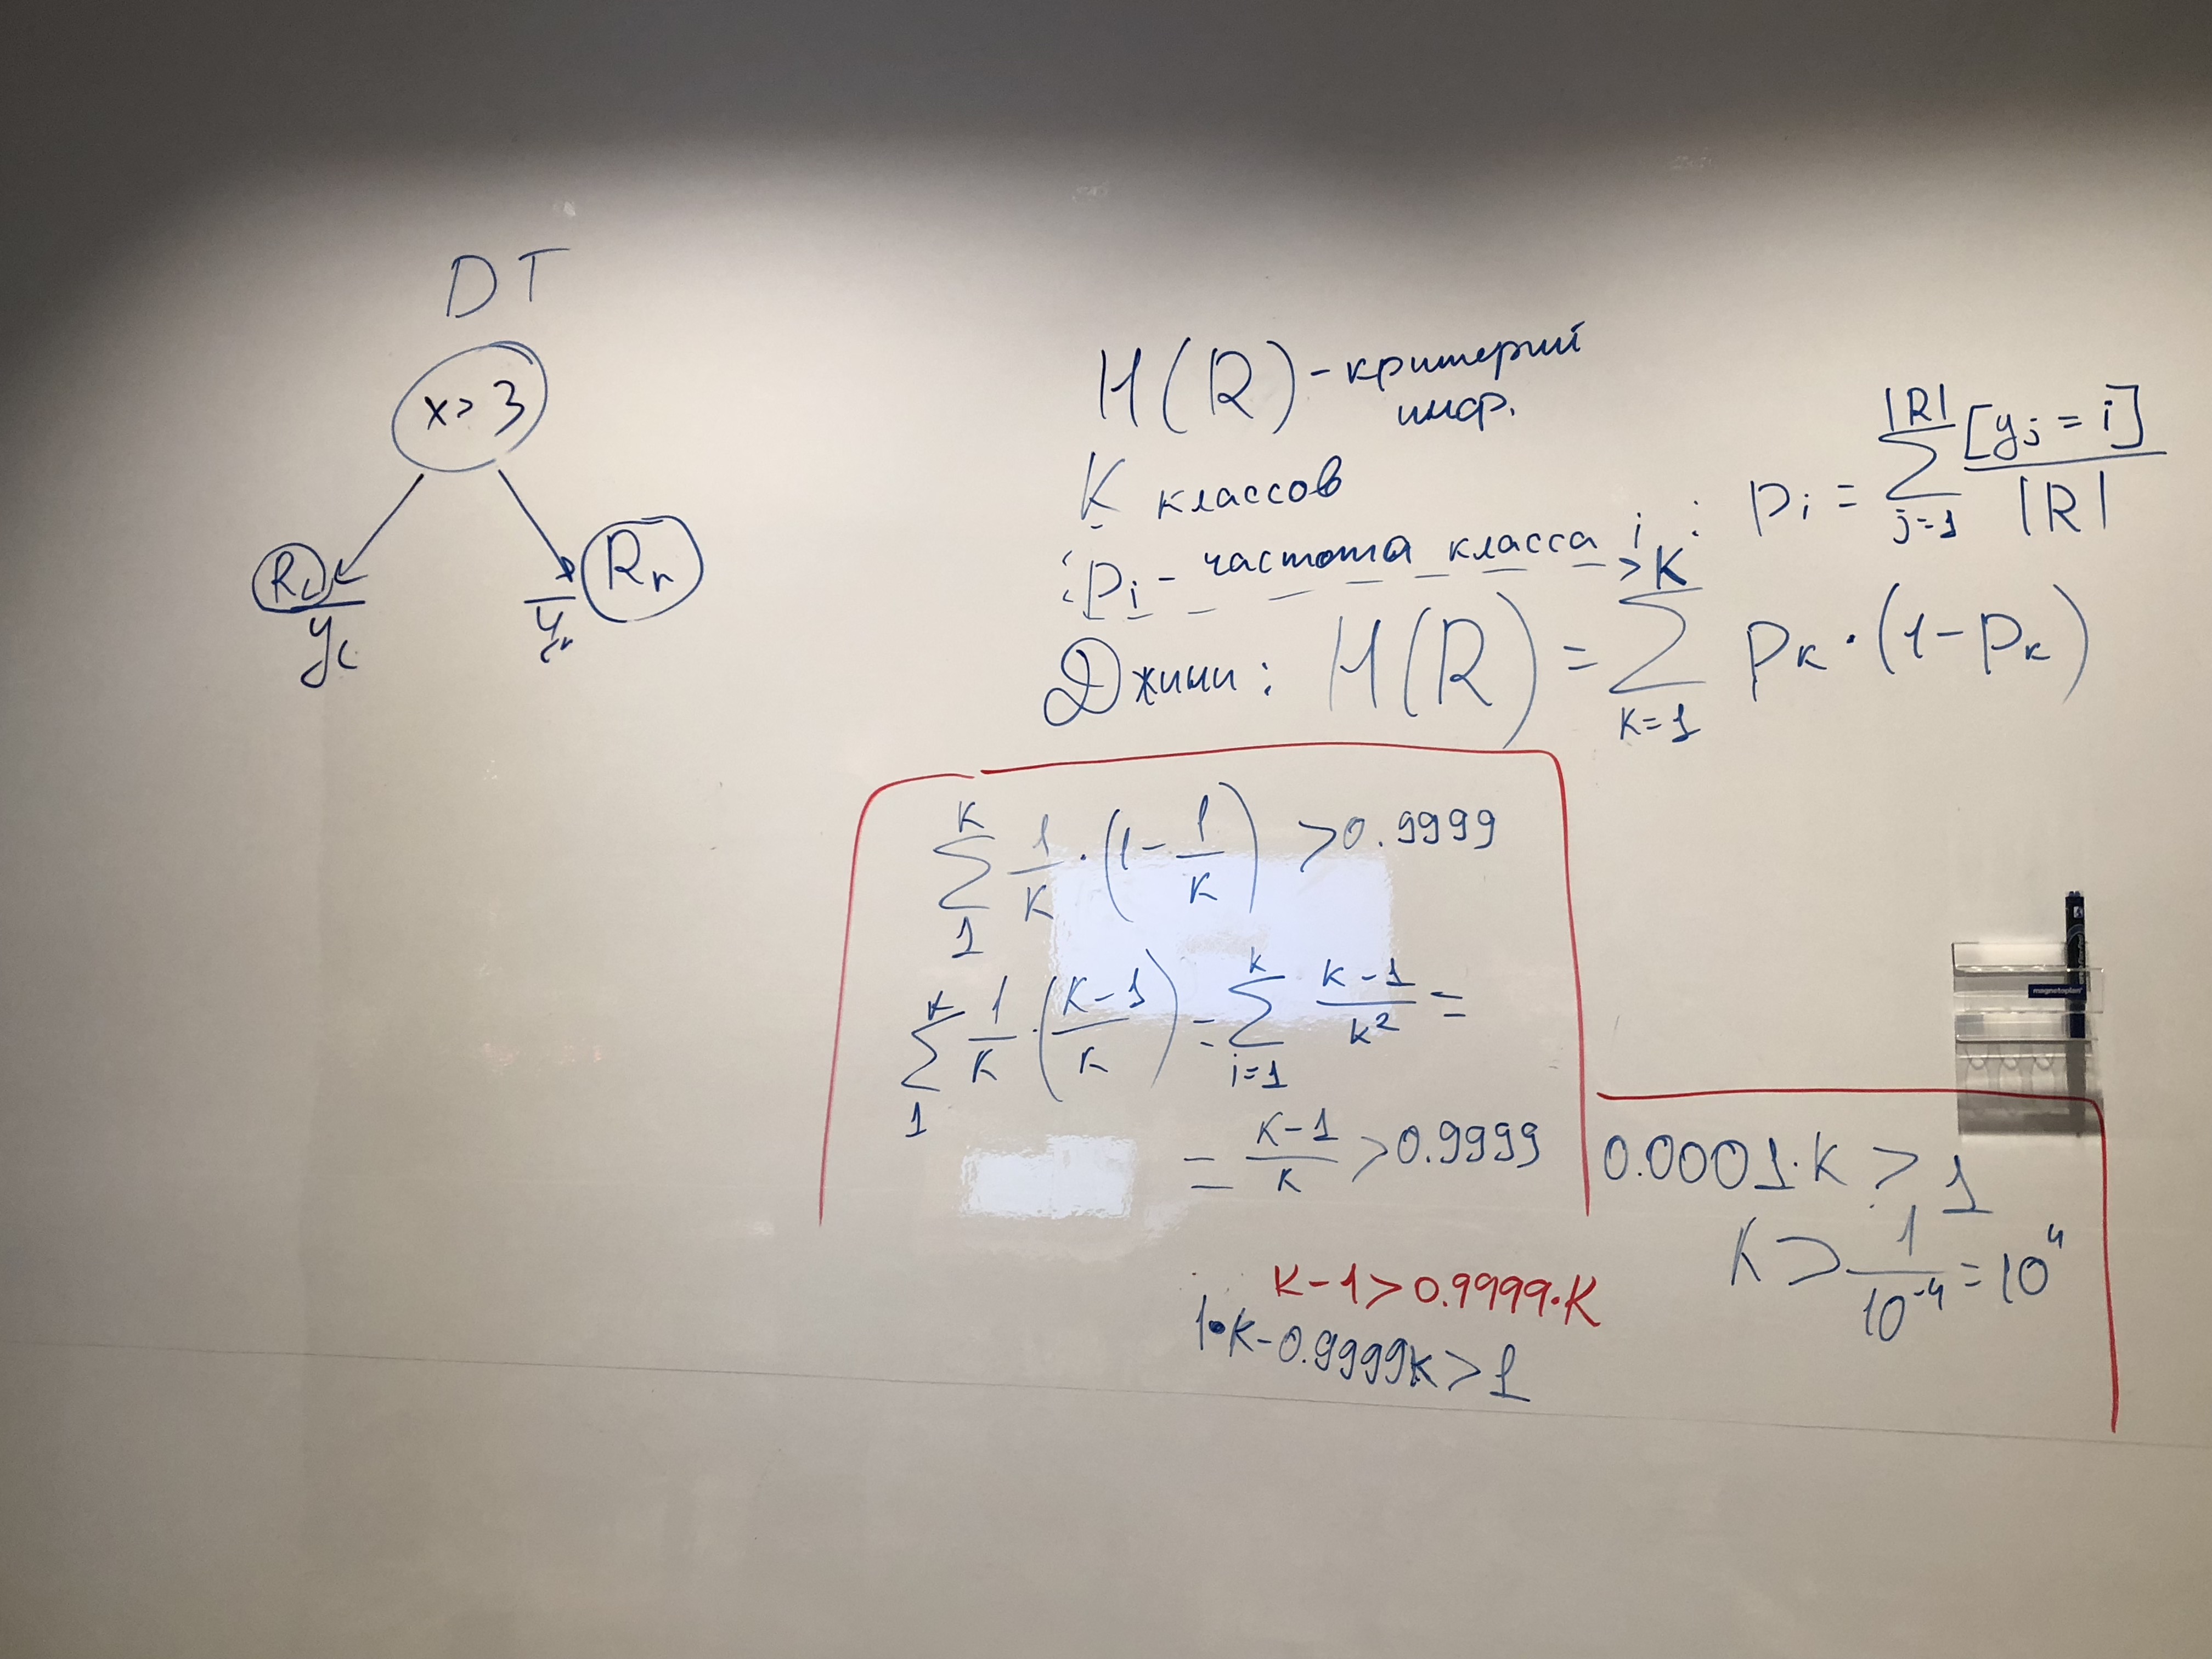 DT
x > 3
R_L
y_L
R_r
y_r
H(R) - критерий
инф.
K классов
p_i - частота класса i : p_i = \sum_{j=1}^{|R|} \frac{[y_j = i]}{|R|}
Джини: H(R) = \sum_{k=1}^{K} p_k · (1 - p_k)
\sum_{1}^{K} \frac{1}{K} · (1 - \frac{1}{K}) > 0.9999
\sum_{1}^{K} \frac{1}{K} · (\frac{K-1}{K}) = \sum_{i=1}^{K} \frac{K-1}{K^2} =
= \frac{K-1}{K} > 0.9999
K - 1 > 0.9999 · K
1 · K - 0.9999K > 1
0.0001 · K > 1
K > \frac{1}{10^{-4}} = 10^4
magnetoplan